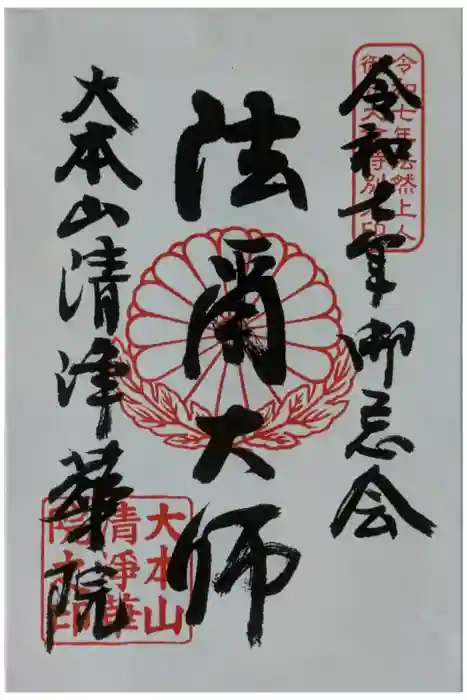 令和七年法然上人
令和七年御忌会
法爾大師
大本山清浄華院
大本山
清淨華
院之印